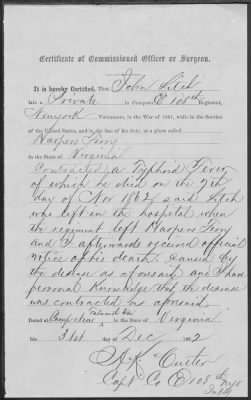 Certificate of Commissioned Officer or Surgeon.
It is hereby Certified, That John Fitch
late a Private in Company E 108th Regiment,
New york Volunteers, in the War of 1861, while in the Service
of the United States, and in the line of his duty, at a place called
Harpers Ferry
in the State of Virginia
contracted a Typhoid Fever
of which he died on the 9th
day of Nov 1862 said Fitch
was left in the hospital when
the regiment left Harpers Ferry
and I afterwards received official
notice of his death. Caused by
the disease as aforesaid and I have
personal knowledge that the disease
was contracted as aforesaid.
Dated at Camp near Falmouth in the State of Virginia
this 31st day of Dec 1862
Capt Co E 108th